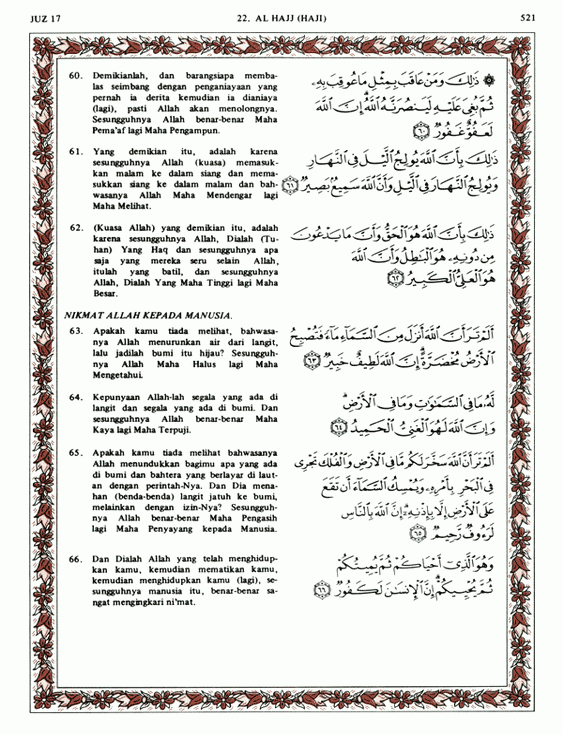 JUZ 17
22. AL HAJJ (HAJI)
521
60. Demikianlah, dan barangsiapa memba-
las seimbang dengan penganiayaan yang
pernah ia derita kemudian ia dianiaya
(lagi), pasti Allah akan menolongnya.
Sesungguhnya Allah benar-benar Maha
Pema'af lagi Maha Pengampun.
۞ ذَٰلِكَ وَمَنْ عَاقَبَ بِمِثْلِ مَا عُوقِبَ بِهِۦ
ثُمَّ بُغِىَ عَلَيْهِ لَيَنصُرَنَّهُ ٱللَّهُ إِنَّ ٱللَّهَ
لَعَفُوٌّ غَفُورٌ ٦٠
61. Yang demikian itu, adalah karena
sesungguhnya Allah (kuasa) memasuk-
kan malam ke dalam siang dan mema-
sukkan siang ke dalam malam dan bah-
wasanya Allah Maha Mendengar lagi
Maha Melihat.
ذَٰلِكَ بِأَنَّ ٱللَّهَ يُولِجُ ٱلَّيْلَ فِى ٱلنَّهَارِ
وَيُولِجُ ٱلنَّهَارَ فِى ٱلَّيْلِ وَأَنَّ ٱللَّهَ سَمِيعٌۢ بَصِيرٌ ٦١
62. (Kuasa Allah) yang demikian itu, adalah
karena sesungguhnya Allah, Dialah (Tu-
han) Yang Haq dan sesungguhnya apa
saja yang mereka seru selain Allah,
itulah yang batil, dan sesungguhnya
Allah, Dialah Yang Maha Tinggi lagi Maha
Besar.
ذَٰلِكَ بِأَنَّ ٱللَّهَ هُوَ ٱلْحَقُّ وَأَنَّ مَا يَدْعُونَ
مِن دُونِهِۦ هُوَ ٱلْبَٰطِلُ وَأَنَّ ٱللَّهَ
هُوَ ٱلْعَلِىُّ ٱلْكَبِيرُ ٦٢
NIKMAT ALLAH KEPADA MANUSIA.
63. Apakah kamu tiada melihat, bahwasa-
nya Allah menurunkan air dari langit,
lalu jadilah bumi itu hijau? Sesungguh-
nya Allah Maha Halus lagi Maha
Mengetahui.
أَلَمْ تَرَ أَنَّ ٱللَّهَ أَنزَلَ مِنَ ٱلسَّمَآءِ مَآءً فَتُصْبِحُ
ٱلْأَرْضُ مُخْضَرَّةً إِنَّ ٱللَّهَ لَطِيفٌ خَبِيرٌ ٦٣
64. Kepunyaan Allah-lah segala yang ada di
langit dan segala yang ada di bumi. Dan
sesungguhnya Allah benar-benar Maha
Kaya lagi Maha Terpuji.
لَّهُۥ مَا فِى ٱلسَّمَٰوَٰتِ وَمَا فِى ٱلْأَرْضِ
وَإِنَّ ٱللَّهَ لَهُوَ ٱلْغَنِىُّ ٱلْحَمِيدُ ٦٤
65. Apakah kamu tiada melihat bahwasanya
Allah menundukkan bagimu apa yang ada
di bumi dan bahtera yang berlayar di laut-
an dengan perintah-Nya. Dan Dia mena-
han (benda-benda) langit jatuh ke bumi,
melainkan dengan izin-Nya? Sesungguh-
nya Allah benar-benar Maha Pengasih
lagi Maha Penyayang kepada Manusia.
أَلَمْ تَرَ أَنَّ ٱللَّهَ سَخَّرَ لَكُم مَّا فِى ٱلْأَرْضِ وَٱلْفُلْكَ تَجْرِى
فِى ٱلْبَحْرِ بِأَمْرِهِۦ وَيُمْسِكُ ٱلسَّمَآءَ أَن تَقَعَ
عَلَى ٱلْأَرْضِ إِلَّا بِإِذْنِهِۦٓ إِنَّ ٱللَّهَ بِٱلنَّاسِ
لَرَءُوفٌ رَّحِيمٌ ٦٥
66. Dan Dialah Allah yang telah menghidup-
kan kamu, kemudian mematikan kamu,
kemudian menghidupkan kamu (lagi), se-
sungguhnya manusia itu, benar-benar sa-
ngat mengingkari ni'mat.
وَهُوَ ٱلَّذِىٓ أَحْيَاكُمْ ثُمَّ يُمِيتُكُمْ
ثُمَّ يُحْيِيكُمْ إِنَّ ٱلْإِنسَٰنَ لَكَفُورٌ ٦٦